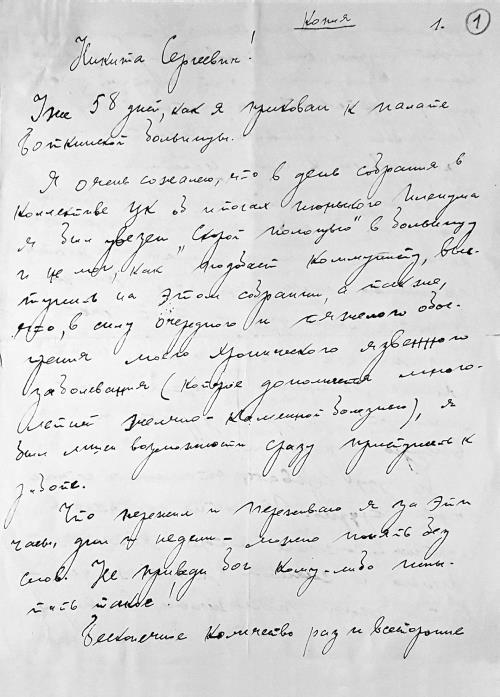 Копия
1. 1
Никита Сергеевич!
Уже 58 дней, как я прикован к палате
Боткинской больницы.
Я очень сожалею, что в день собрания в
коллективе ЦК об итогах июньского Пленума
я был увезен "Скорой помощью" в больницу
и не мог, как подобает коммунисту, выс-
тупить на этом собрании, а также,
что, в силу очередного и тяжелого обос-
трения моего хронического язвенного
заболевания (которое дополняется много-
летней желчно-каменной болезнью), я
был лишен возможности сразу приступить к
работе.
Что пережил и переживаю я за эти
часы, дни и недели - можно понять без
слов. Не приведи бог кому-либо испы-
тать такое!
Бесконечное количество раз и всесторонне